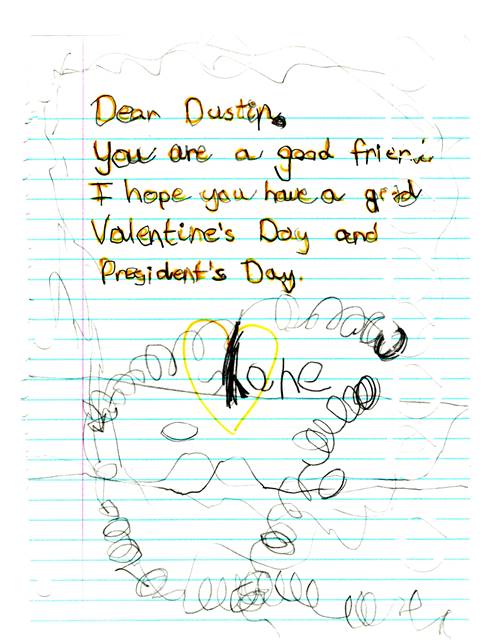 Dear Dustin,
You are a good friend
I hope you have a
Valentine's Day and
President's Day.
Kane